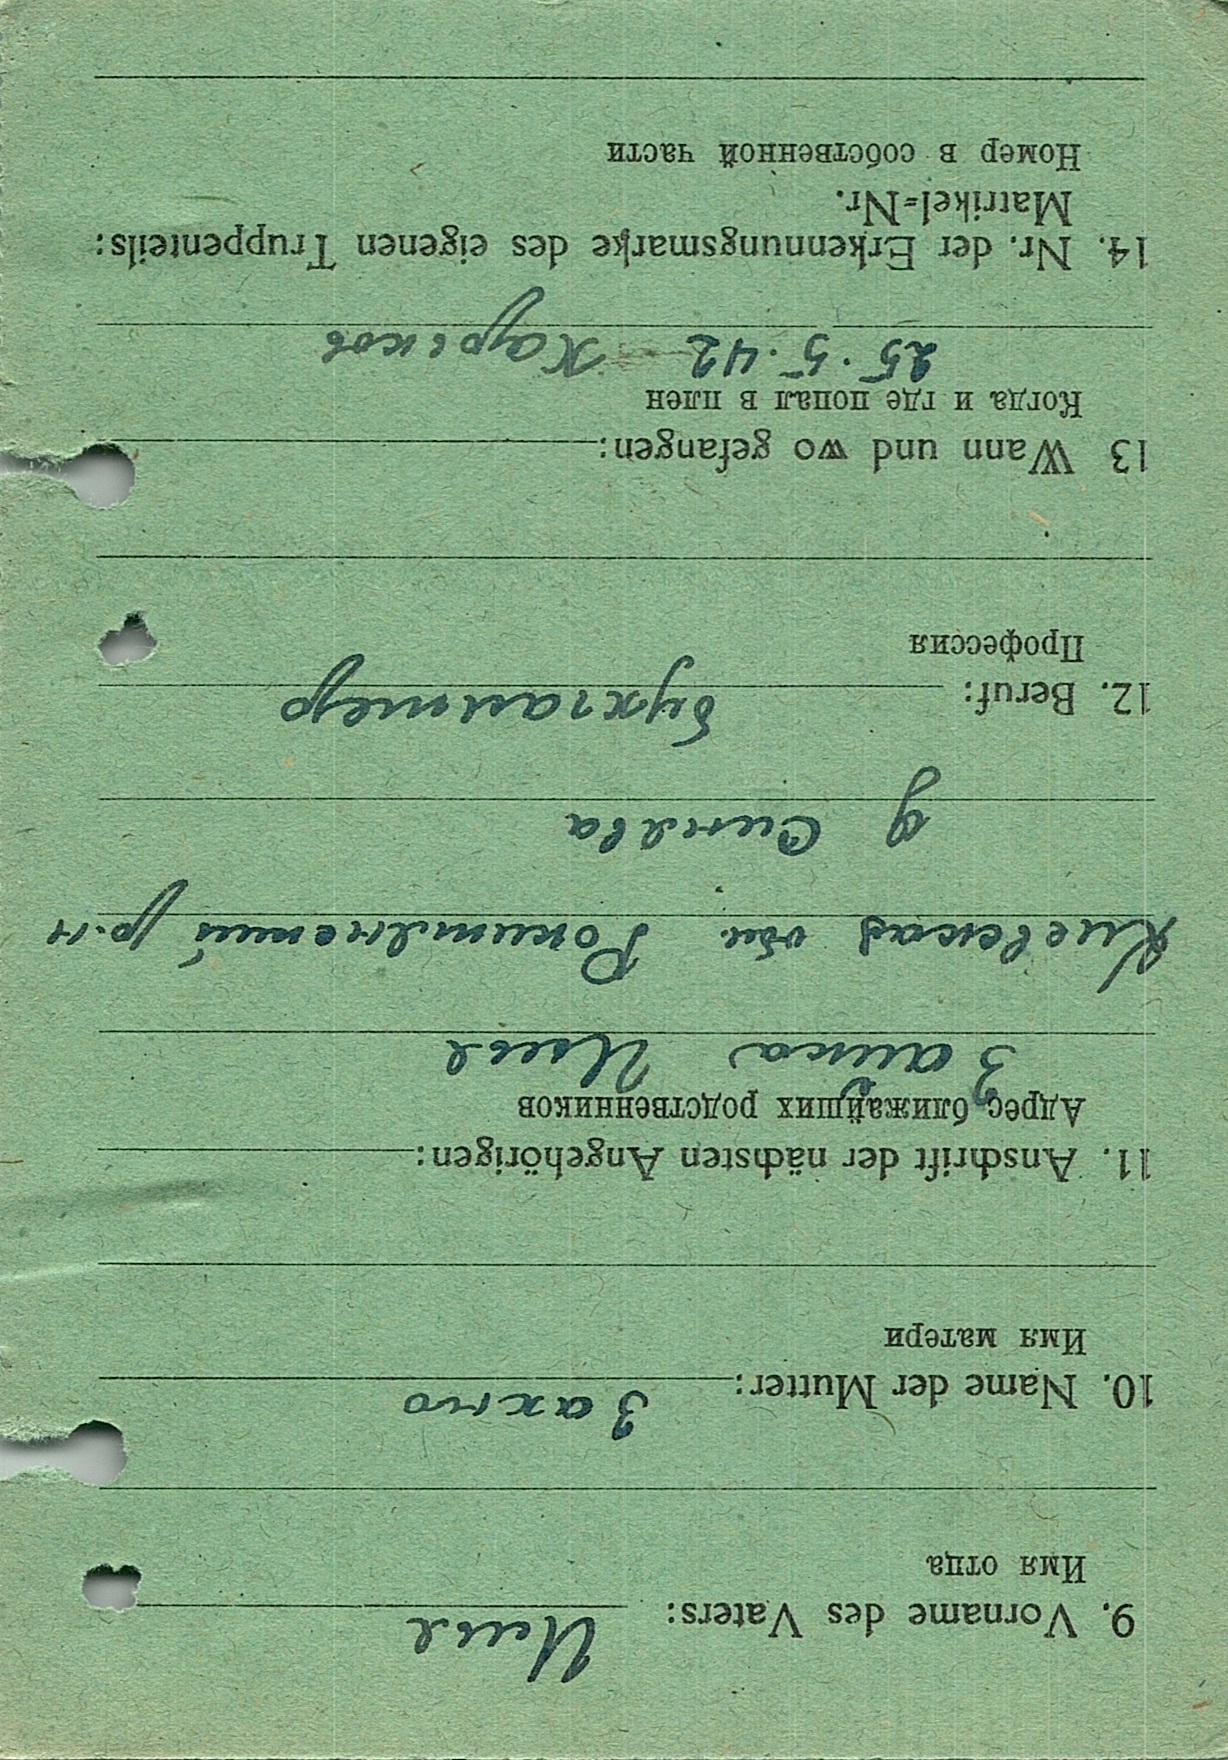 9. Vorname des Vaters: Илья
Имя отца
10. Name der Mutter: Захно
Имя матери
11. Anschrift der nächsten Angehörigen:
Адрес ближайших родственников
Заика Илья
Киевская обл. Рокитянский р-н
д Синява
12. Beruf: бухгалтер
Профессия
13 Wann und wo gefangen:
Когда и где попал в плен
25.5.42 Харьков
14. Nr. der Erkennungsmarke des eigenen Truppenteils:
Matrikel=Nr.
Номер в собственной части